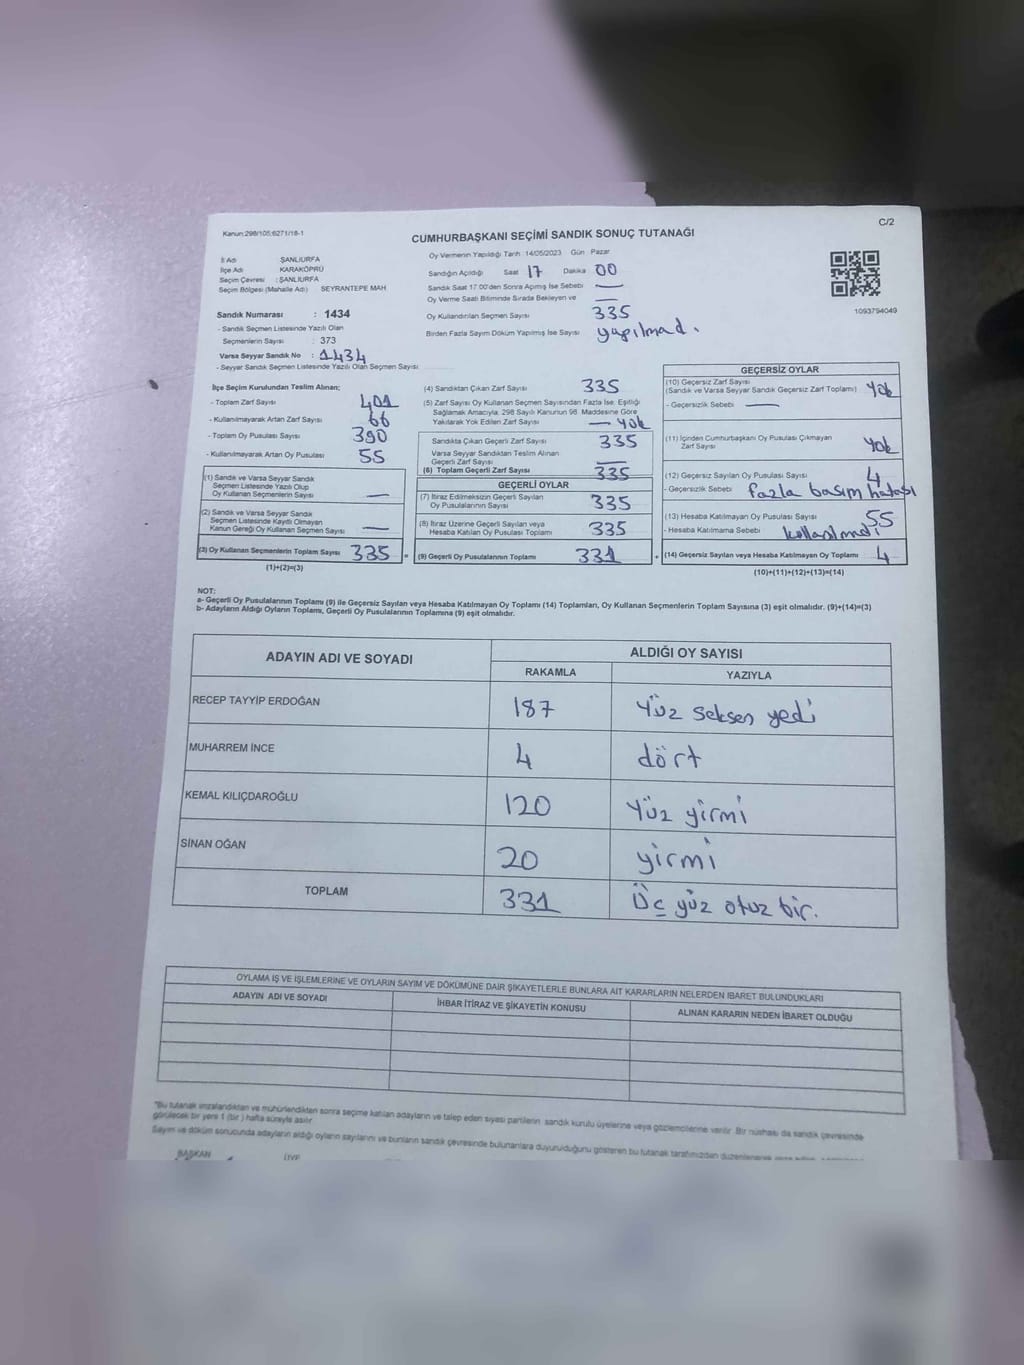 C/2
Kanun:298/105;6271/18-1
CUMHURBAŞKANI SEÇİMİ SANDIK SONUÇ TUTANAĞI
İl Adı : ŞANLIURFA
İlçe Adı KARAKÖPRÜ
Seçim Çevresi : ŞANLIURFA
Seçim Bölgesi (Mahalle Adı) SEYRANTEPE MAH
Sandık Numarası : 1434
- Sandık Seçmen Listesinde Yazılı Olan
Seçmenlerin Sayısı : 373
Varsa Seyyar Sandık No : 1434
- Seyyar Sandık Seçmen Listesinde Yazılı Olan Seçmen Sayısı
Oy Vermenin Yapıldığı Tarih 14/05/2023 Gün Pazar
Sandığın Açıldığı Saat 17 Dakika 00
Sandık Saat 17.00'den Sonra Açılmış İse Sebebi —
Oy Verme Saati Bitiminde Sırada Bekleyen ve —
Oy Kullandırılan Seçmen Sayısı 335
Birden Fazla Sayım Döküm Yapılmış İse Sayısı yapılmadı.
1093794049
İlçe Seçim Kurulundan Teslim Alınan;
- Toplam Zarf Sayısı 401
- Kullanılmayarak Artan Zarf Sayısı 66
- Toplam Oy Pusulası Sayısı 390
- Kullanılmayarak Artan Oy Pusulası 55
(1) Sandık ve Varsa Seyyar Sandık
Seçmen Listesinde Yazılı Olup
Oy Kullanan Seçmenlerin Sayısı —
(2) Sandık ve Varsa Seyyar Sandık
Seçmen Listesinde Kayıtlı Olmayan
Kanun Gereği Oy Kullanan Seçmen Sayısı —
(3) Oy Kullanan Seçmenlerin Toplam Sayısı 335 =
(1)+(2)=(3)
(4) Sandıktan Çıkan Zarf Sayısı 335
(5) Zarf Sayısı Oy Kullanan Seçmen Sayısından Fazla İse; Eşitliği
Sağlamak Amacıyla, 298 Sayılı Kanunun 98. Maddesine Göre
Yakılarak Yok Edilen Zarf Sayısı — yok
Sandıkta Çıkan Geçerli Zarf Sayısı 335
Varsa Seyyar Sandıktan Teslim Alınan
Geçerli Zarf Sayısı —
(6) Toplam Geçerli Zarf Sayısı 335
GEÇERLİ OYLAR
(7) İtiraz Edilmeksizin Geçerli Sayılan
Oy Pusulalarının Sayısı 335
(8) İtiraz Üzerine Geçerli Sayılan veya
Hesaba Katılan Oy Pusulası Toplamı 335
(9) Geçerli Oy Pusulalarının Toplamı 331 +
GEÇERSİZ OYLAR
(10) Geçersiz Zarf Sayısı
(Sandık ve Varsa Seyyar Sandık Geçersiz Zarf Toplamı) Yok
- Geçersizlik Sebebi —
(11) İçinden Cumhurbaşkanı Oy Pusulası Çıkmayan
Zarf Sayısı Yok
(12) Geçersiz Sayılan Oy Pusulası Sayısı 4
- Geçersizlik Sebebi fazla basım hatası
(13) Hesaba Katılmayan Oy Pusulası Sayısı 55
- Hesaba Katılmama Sebebi kullanılmadı
(14) Geçersiz Sayılan veya Hesaba Katılmayan Oy Toplamı 4
(10)+(11)+(12)+(13)=(14)
NOT:
a- Geçerli Oy Pusulalarının Toplamı (9) ile Geçersiz Sayılan veya Hesaba Katılmayan Oy Toplamı (14) Toplamları, Oy Kullanan Seçmenlerin Toplam Sayısına (3) eşit olmalıdır. (9)+(14)=(3)
b- Adayların Aldığı Oyların Toplamı, Geçerli Oy Pusulalarının Toplamına (9) eşit olmalıdır.
ADAYIN ADI VE SOYADI ALDIĞI OY SAYISI
RAKAMLA YAZIYLA
RECEP TAYYİP ERDOĞAN 187 Yüz seksen yedi
MUHARREM İNCE 4 dört
KEMAL KILIÇDAROĞLU 120 Yüz yirmi
SİNAN OĞAN 20 yirmi
TOPLAM 331 Üç yüz otuz bir.
OYLAMA İŞ VE İŞLEMLERİNE VE OYLARIN SAYIM VE DÖKÜMÜNE DAİR ŞİKAYETLERLE BUNLARA AİT KARARLARIN NELERDEN İBARET BULUNDUKLARI
ADAYIN ADI VE SOYADI İHBAR İTİRAZ VE ŞİKAYETİN KONUSU ALINAN KARARIN NEDEN İBARET OLDUĞU
*Bu tutanak imzalandıktan ve mühürlendikten sonra seçime katılan adayların ve talep eden siyasi partilerin sandık kurulu üyelerine veya gözlemcilerine verilir. Bir nüshası da sandık çevresinde
görülecek bir yere 1 (bir) hafta süreyle asılır.
Sayım ve döküm sonucunda adayların aldığı oyların sayılarını ve bunların sandık çevresinde bulunanlara duyurulduğunu gösteren bu tutanak tarafımızdan
BAŞKAN ÜYE